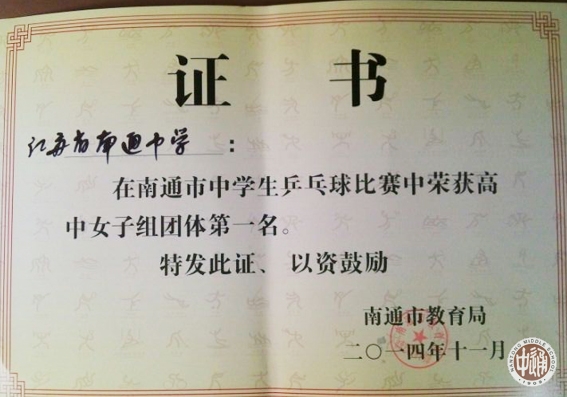 证 书
江苏省南通中学：
在南通市中学生乒乓球比赛中荣获高
中女子组团体第一名。
特发此证、以资鼓励
南通市教育局
二〇一四年十一月
中通
NANTONG MIDDLE SCHOOL